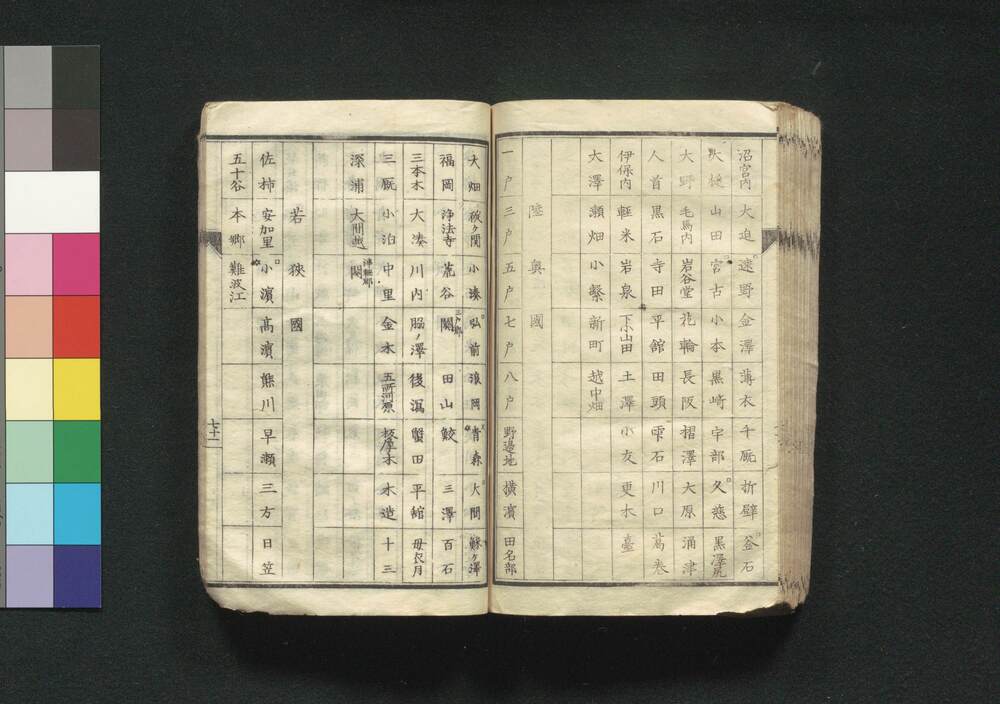 沼宮内 大迫 遠野 金澤 薄衣 千厩 折壁 釜石
大槌 山田 宮古 小本 黒崎 宇部 久慈 黒澤尻
大野 毛馬内 岩谷堂 花輪 長阪 摺澤 大原 涌津
人首 黒石 寺田 平舘 田頭 雫石 川口 葛巻
伊保内 軽米 岩泉 下小山田 土澤 小友 更木 臺
大澤 瀬畑 小繋 新町 越中畑
陸奥國
一戸 三戸 五戸 七戸 八戸 野邉地 横濱 田名部
大畑 碇ヶ関 小湊 弘前 浪岡 青森 大間 鯵ヶ澤
福岡 浄法寺 荒谷 三戸郡 関 田山 鮫 三澤 百石
三本木 大湊 川内 脇ノ澤 後潟 蟹田 平舘 母衣月
三厩 小泊 中里 金木 五所河原 板屋木 木造 十三
深浦 大間越 津軽郡 関
若狹國
佐柿 安加里 小濱 高濱 熊川 早瀬 三方 日笠
五十谷 本郷 難波江
七十二